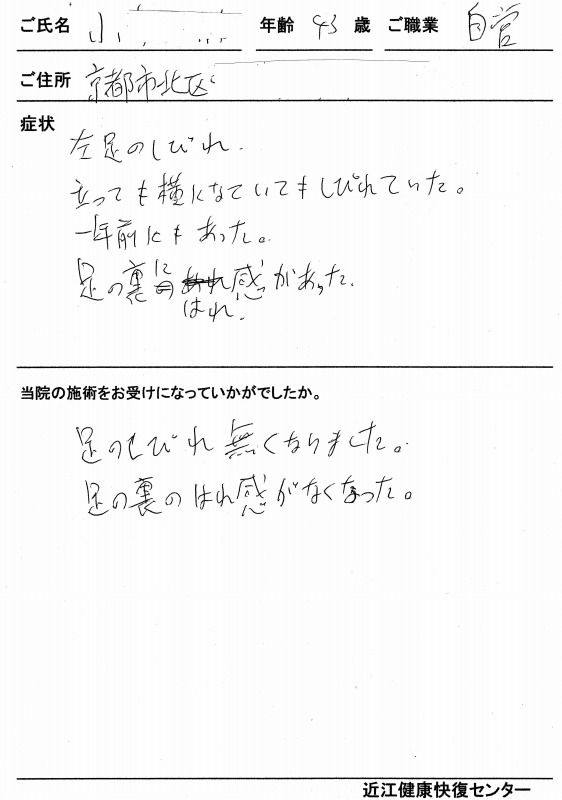 ご氏名 小 年齢 43 歳 ご職業 自営
ご住所 京都市北区
症状
左足のしびれ.
立っても横になていてもしびれていた。
一年前にもあった。
足の裏に 感があった.
はれ.
当院の施術をお受けになっていかがでしたか。
足のしびれ無くなりました。
足の裏のはれ感がなくなった。
近江健康快復センター